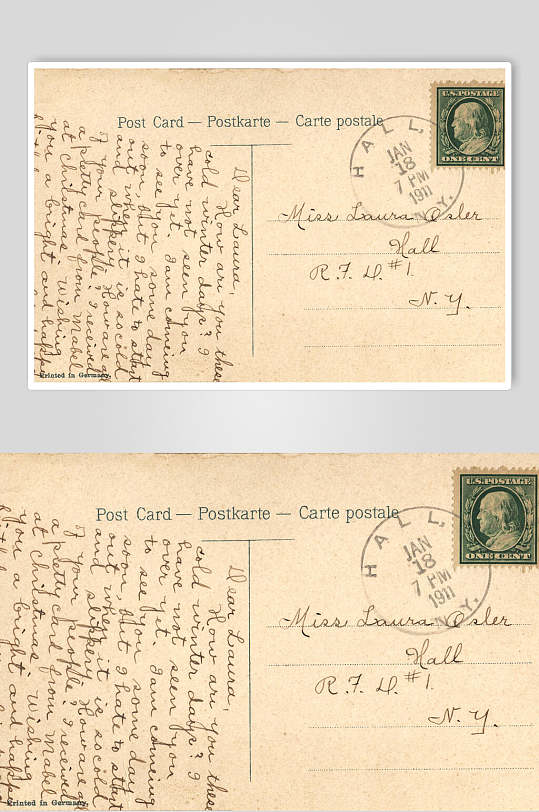 Post Card — Postkarte — Carte postale
U.S. POSTAGE
ONE CENT
HALL, N.Y.
JAN
18
7 PM
1911
Dear Laura,
How are you these
cold winter days? I
have not seen you
over yet. I am coming
to see you some day
soon, but I hate to start
out when it is so cold
and slippery. How are
of your people? I received
a pretty card from Mabel
at Christmas. Wishing
you a bright and happy
Miss Laura Osler
Hall
R.F.D. #1.
N.Y.
Printed in Germany.
Post Card — Postkarte — Carte postale
U.S. POSTAGE
ONE CENT
HALL, N.Y.
JAN
18
7 PM
1911
Dear Laura,
How are you these
cold winter days? I
have not seen you
over yet. I am coming
to see you some day
soon, but I hate to start
out when it is so cold
and slippery. How are
of your people? I received
a pretty card from Mabel
at Christmas. Wishing
you a bright and happy
Miss Laura Osler
Hall
R.F.D. #1.
N.Y.
Printed in Germany.